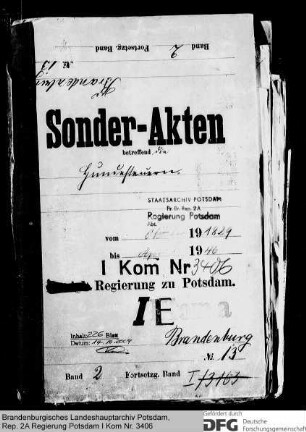 Band 2 Fortsetzg. Band
№ 13
Brandenburg
Sonder-Akten
betreffend die
Hundesteuern.
STAATSARCHIV POTSDAM
Pr. Br. Rep. 2A
Regierung Potsdam
Abt.
vom 19
bis 19
I Kom Nr 3406
Regierung zu Potsdam.
I E
Inhalt: 226 Blatt
Datum:
Brandenburg
№ 13
Band 2 Fortsetzg. Band
Brandenburgisches Landeshauptarchiv Potsdam,
Rep. 2A Regierung Potsdam I Kom Nr. 3406
Gefördert durch
DFG Deutsche
Forschungsgemeinschaft